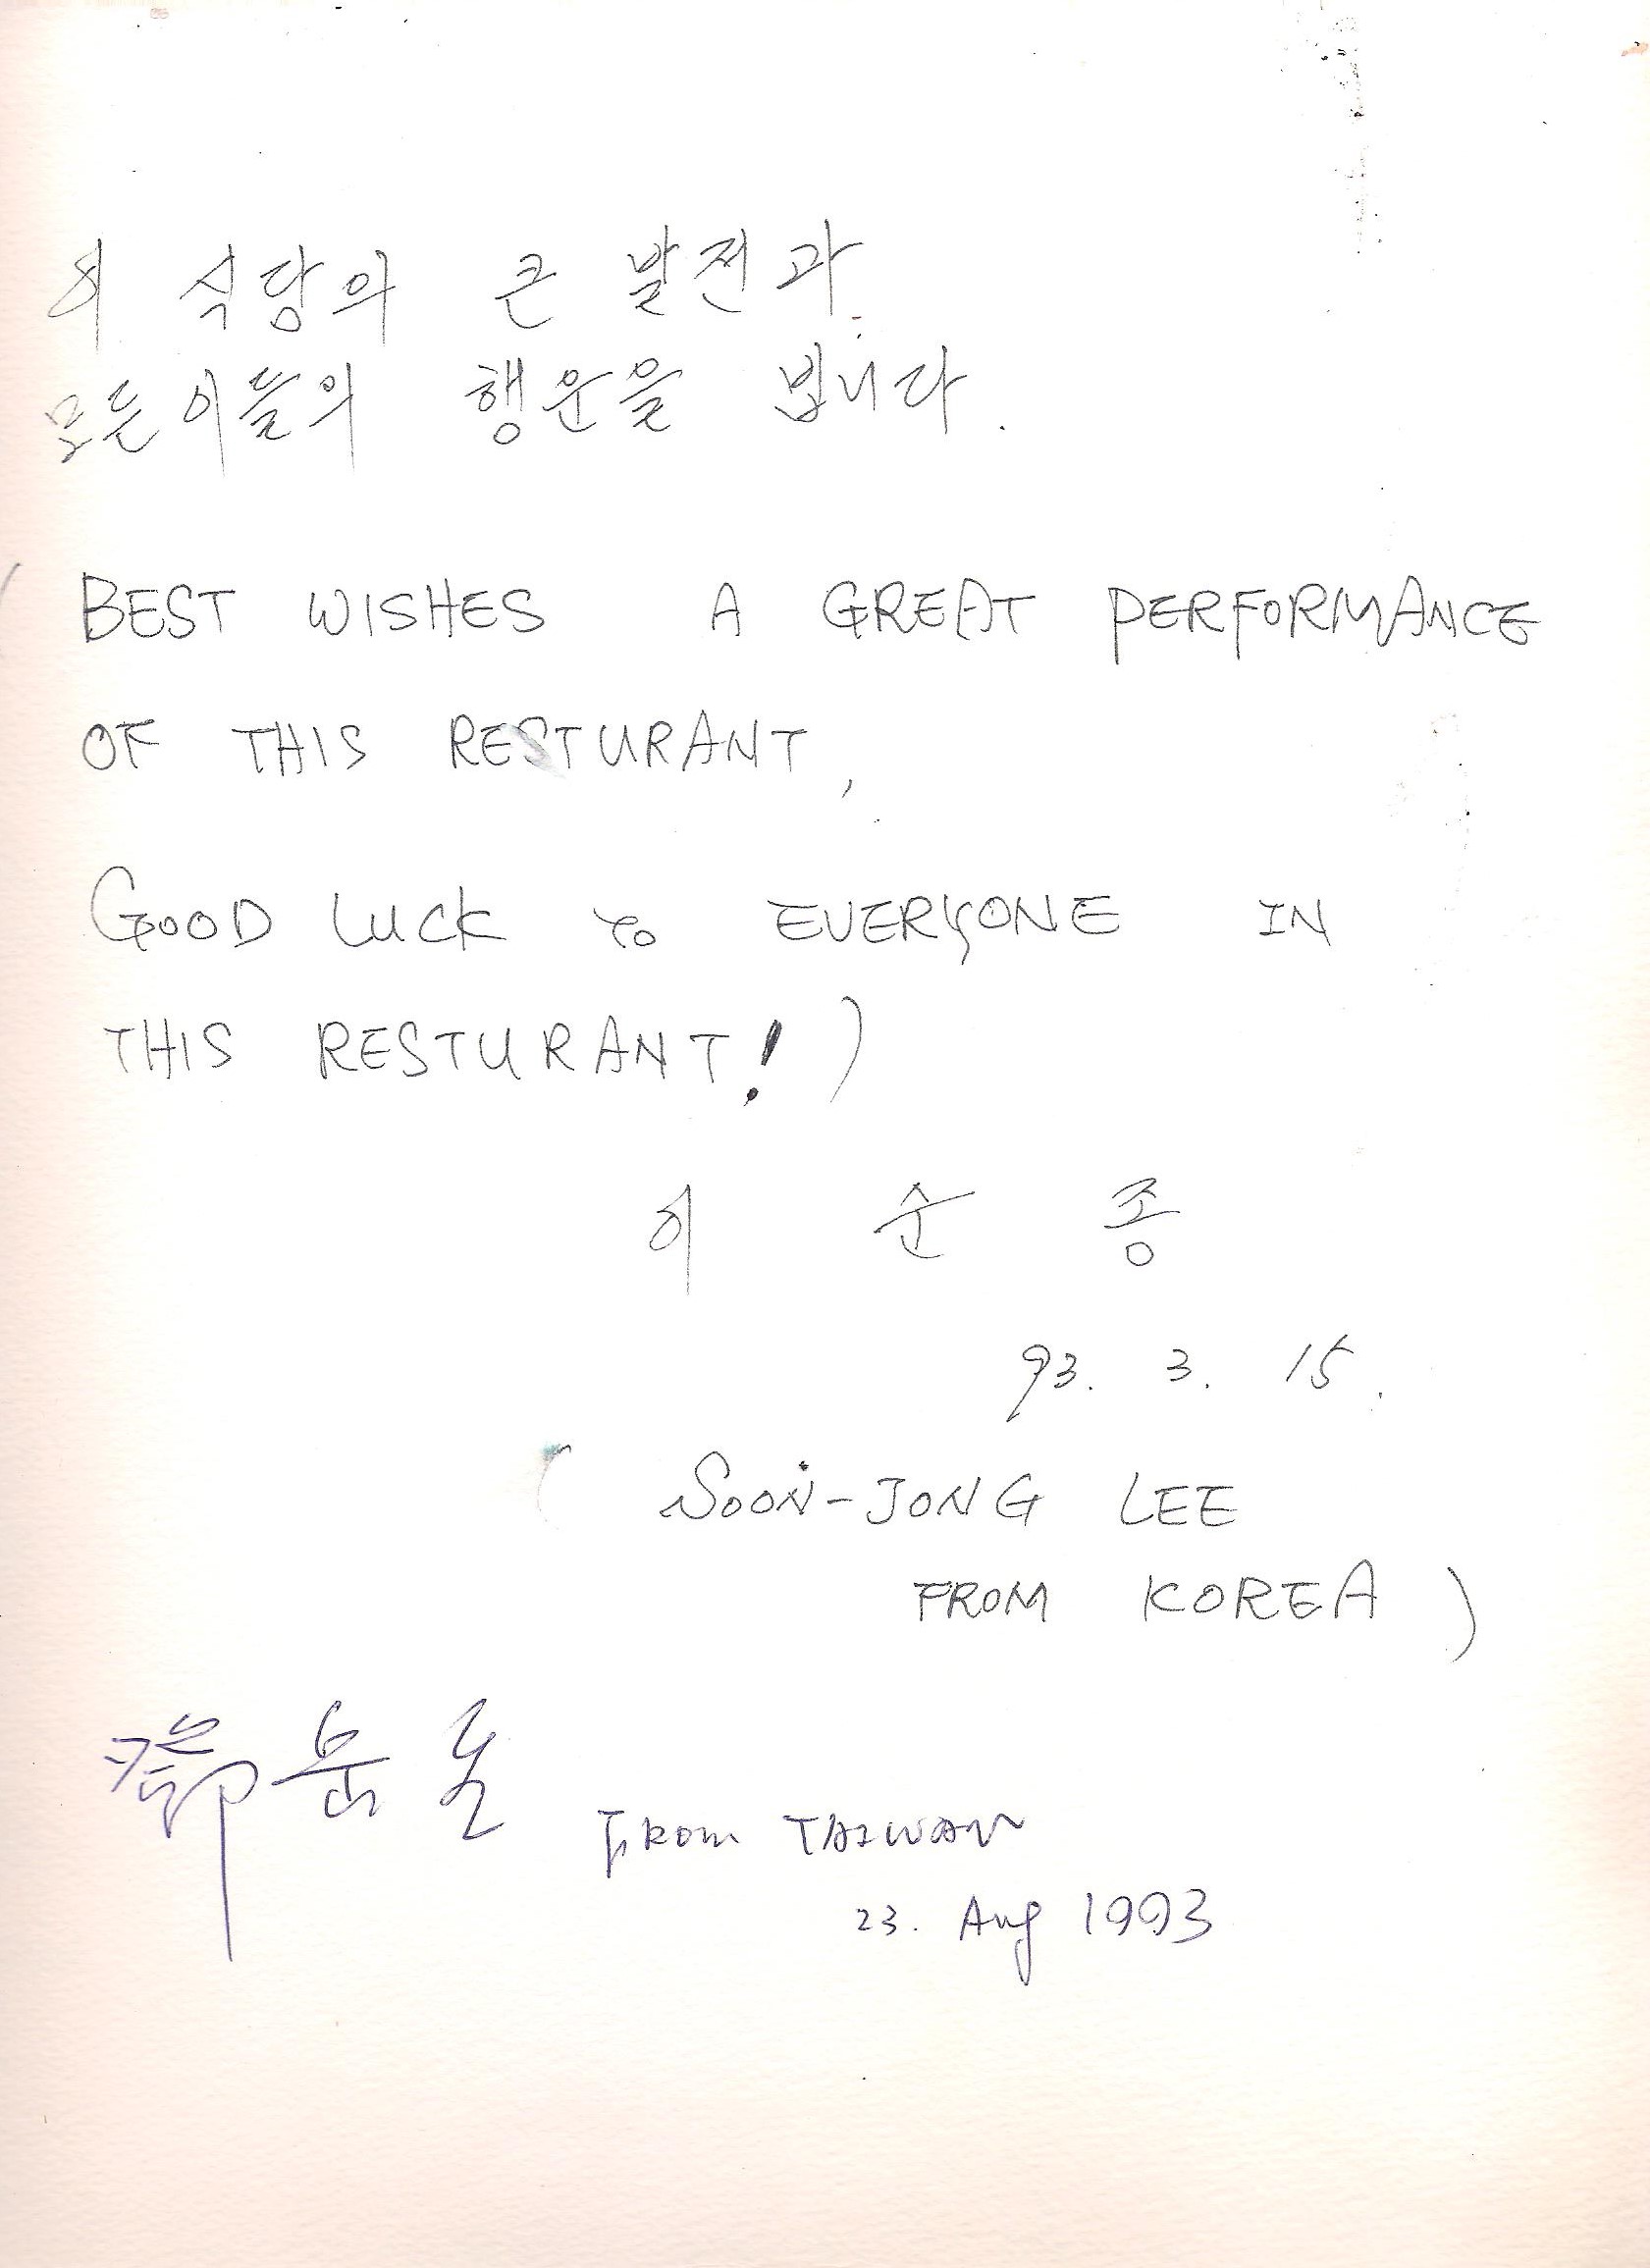 이 식당의 큰 발전과
모든 이들의 행운을 빕니다.
(BEST WISHES A GREAT PERFORMANCE
OF THIS RESTURANT,
GOOD LUCK TO EVERYONE IN
THIS RESTURANT!)
이 순 종
93. 3. 15.
(SOON-JONG LEE
FROM KOREA)
FROM TAIWAN
23. Aug 1993